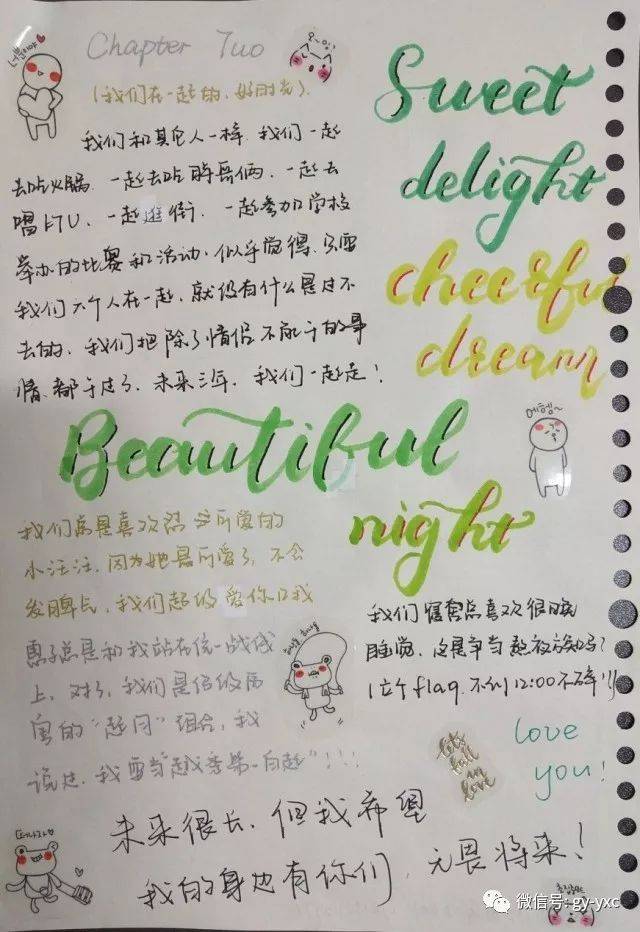 Chapter Two
(我们在一起的、好时光).
我们和其它人一样,我们一起
去吃火锅、一起去吃胖哥俩、一起去
唱KTV、一起逛街、一起参加学校
举办的比赛和活动,似乎觉得,只要
我们六个人在一起,就没有什么是过不
去的,我们把除了情侣不能干的事
情都干过了,未来三年,我们一起走!
Sweet
delight
cheerful
dream
Beautiful
night
我们总是喜欢 可爱的
小汪汪,因为她最可爱了,不会
发脾气,我们超级爱你
总是和我站在统一战线
上,对了,我们是
的“赵同”组合,我
说过,我要当“赵 第一白赵”!!!
我们 总喜欢很晚
睡觉,这是争当熬夜 吗?
(立个flag,不到12:00不碎!!)
Let's
fall
in
love
love
you!
未来很长,但我希望
我的身边有你们,无畏将来!
에헴~
微信号: gy-yxc